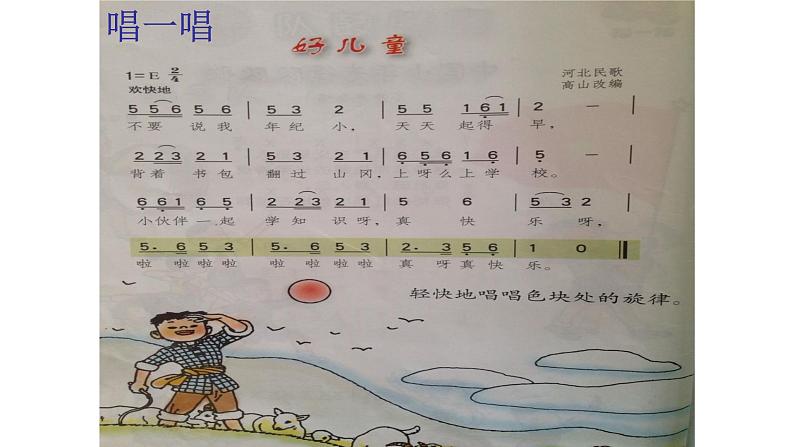 唱一唱
好儿童
1=E 2/4
河北民歌
欢快地
高山改编
5 5 6 5 6 | 5 3 2 | 5 5 1 6 1 | 2 — |
不要 说我 年纪 小， 天天 起得 早，
2 2 3 2 1 | 5 3 2 1 | 6 5 6 1 6 | 5 — |
背着 书包 翻过 山冈， 上呀么上学 校。
6 6 1 6 5 | 2 2 3 2 1 | 6 1 6 | 5 3 2 |
小伙伴一起 学知 识呀， 真 快 乐 呀，
5. 6 5 3 | 5. 6 5 3 | 2. 3 5 6 | 1 0 ‖
啦 啦啦啦 啦 啦啦啦 真 呀真快 乐。
轻快地唱唱色块处的旋律。